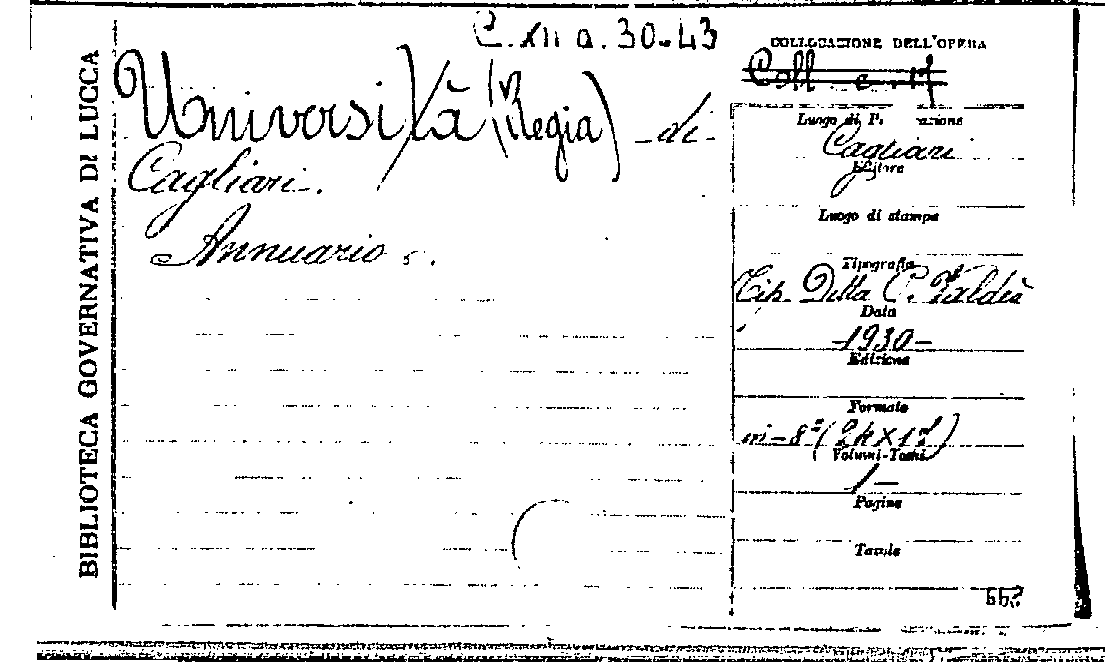 C. XII a. 30-43
BIBLIOTECA GOVERNATIVA DI LUCCA
Università (Regia) di
Cagliari.
Annuario
COLLOCAZIONE DELL'OPERA
Coll
Luogo di
Cagliari
Editore
Luogo di stampa
Tipografia
Tip. Ditta C. Valdès
Data
-1930-
Edizione
Formato
in-8° (24X17)
Volumi-Tomi
1-
Pagine
Tavole